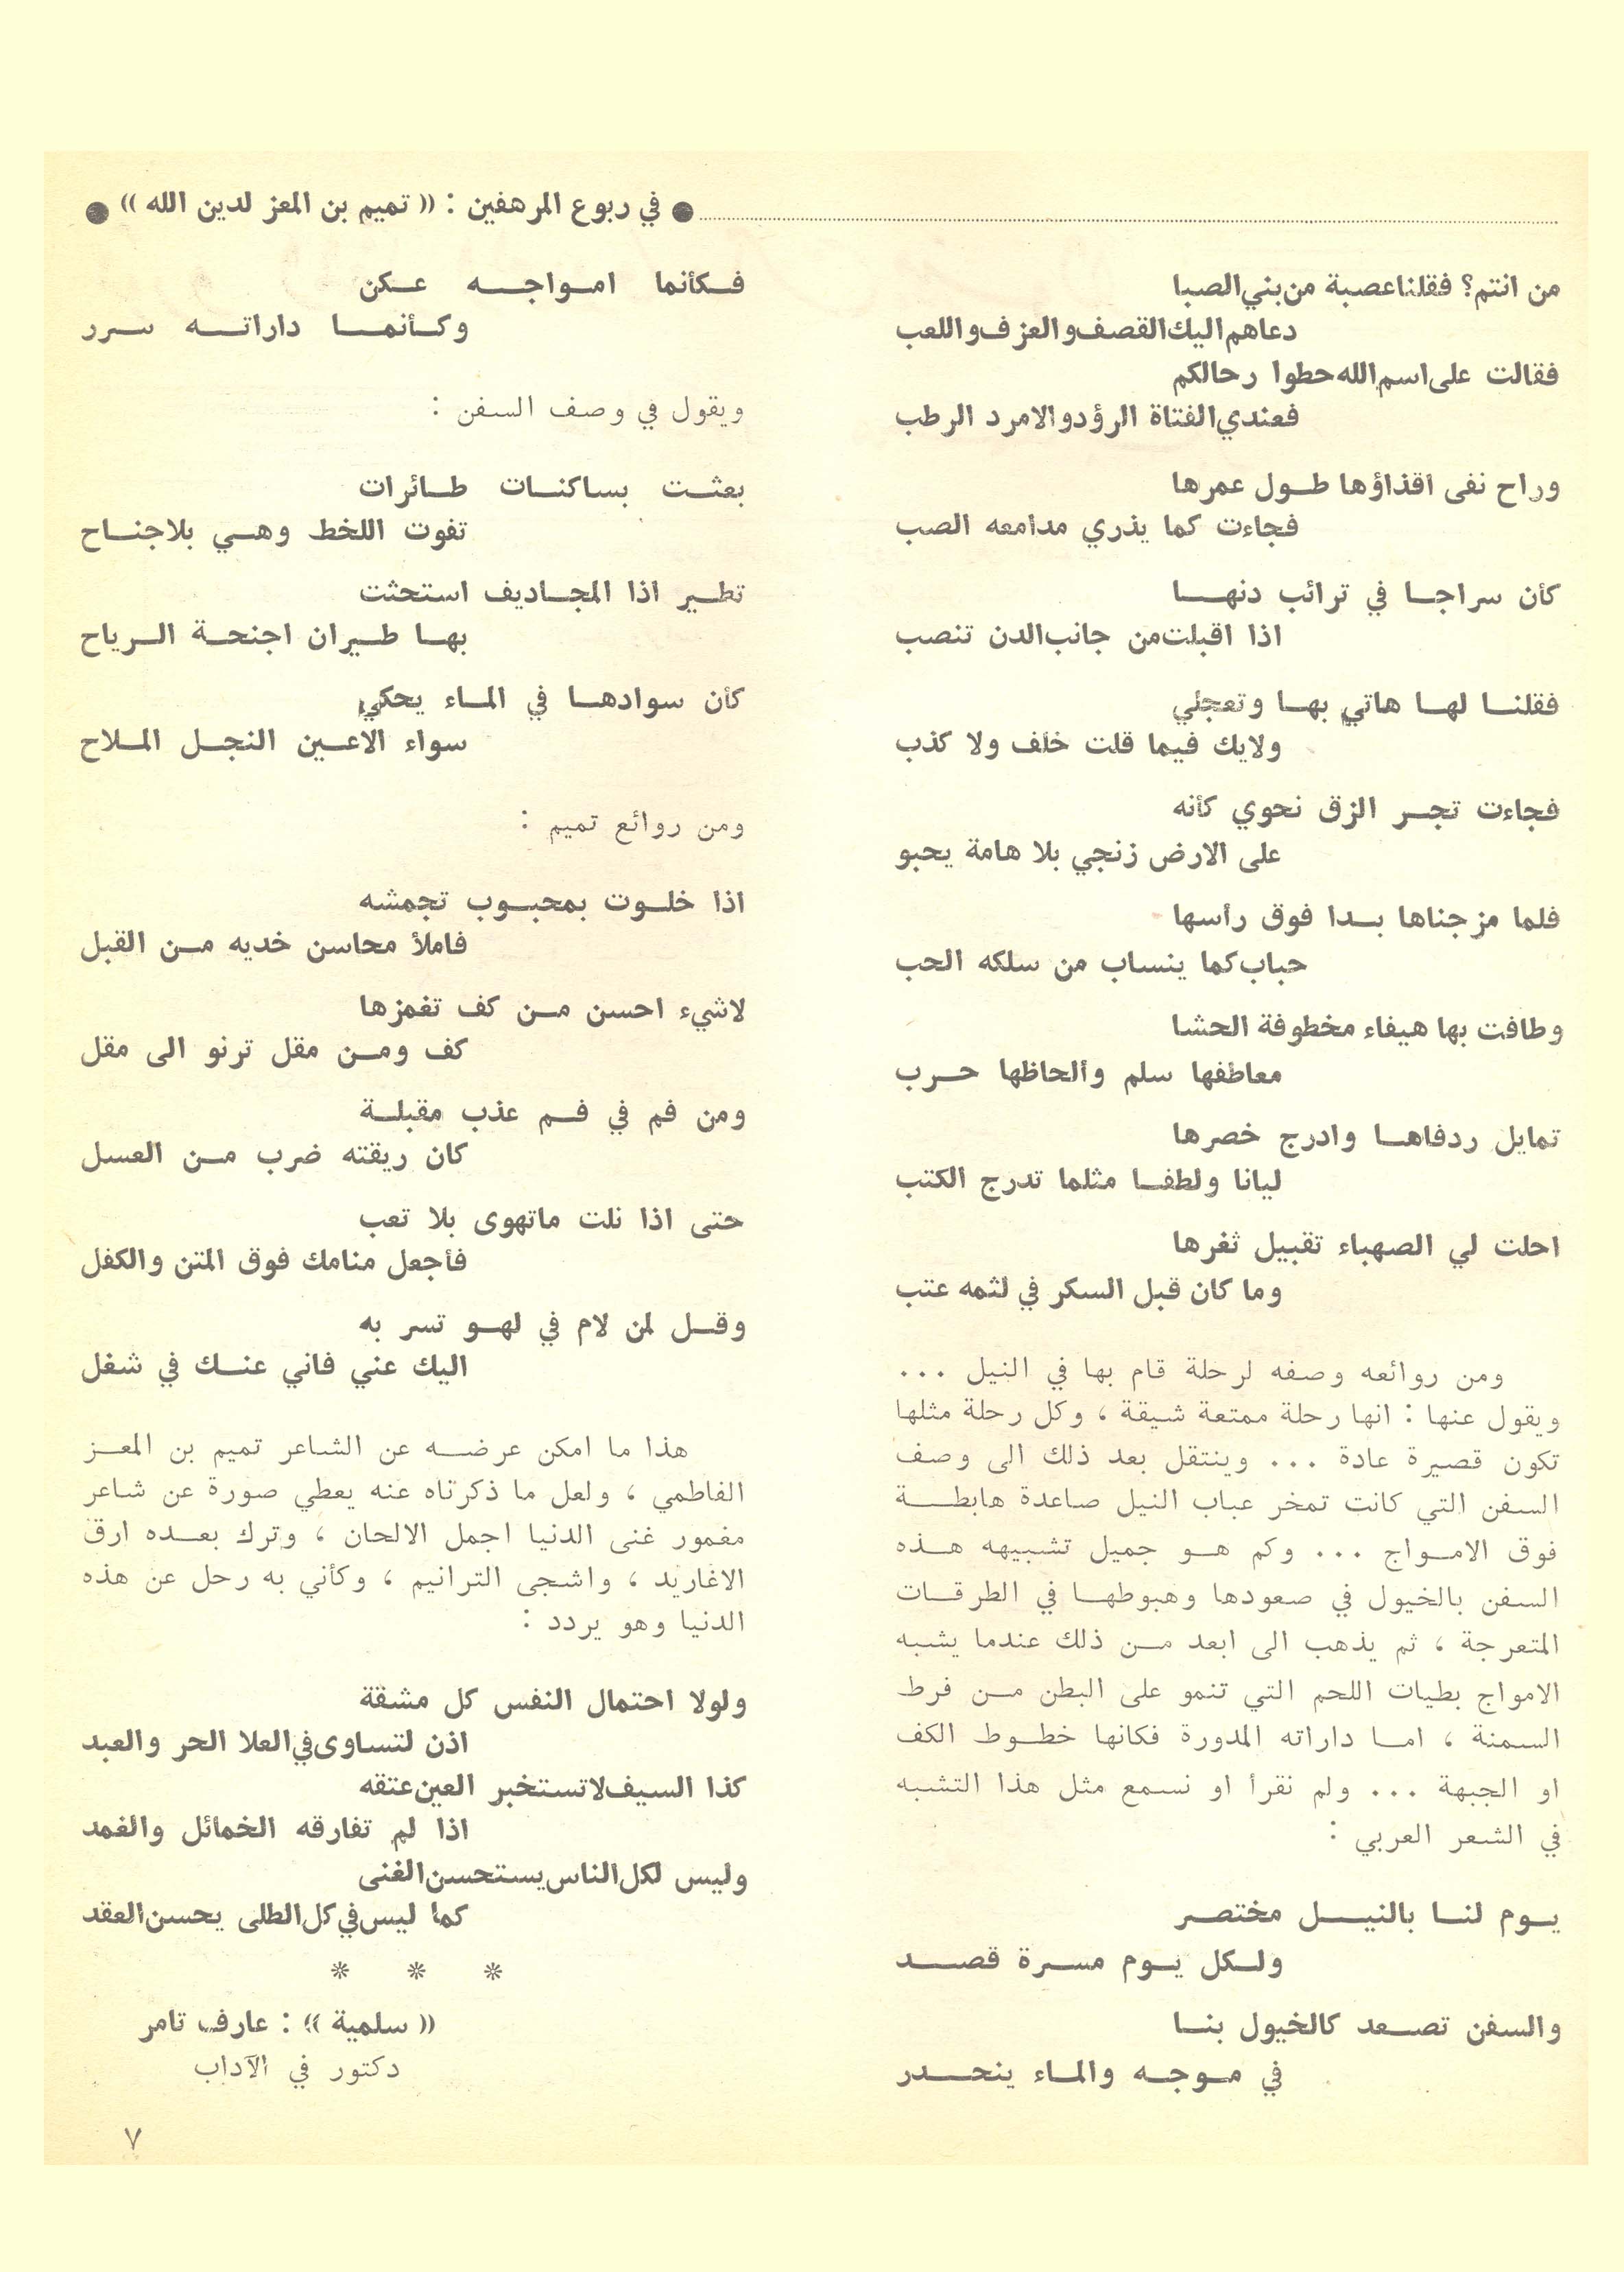 ● في ربوع المرهفين : « تميم بن المعز لدين الله » ●
من انتم؟ فقلنا عصبة من بني الصبا
دعاهم اليك القصف والعزف واللعب
فقالت على اسم الله حطوا رحالكم
فعندي الفتاة الرؤد والامرد الرطب
وراح نفى اقذاؤها طول عمرها
فجاءت كما يذري مدامعه الصب
كأن سراجا في ترائب دنها
اذا اقبلت من جانب الدن تنصب
فقلنا لها هاتي بها وتعجلي
ولايك فيما قلت خلف ولا كذب
فجاءت تجر الزق نحوي كأنه
على الارض زنجي بلا هامة يحبو
فلما مزجناها بدا فوق رأسها
حباب كما ينساب من سلكه الحب
وطافت بها هيفاء مخطوفة الحشا
معاطفها سلم وألحاظها حرب
تمايل ردفاها وادرج خصرها
ليانا ولطفا مثلما تدرج الكتب
احلت لي الصهباء تقبيل ثغرها
وما كان قبل السكر في لثمه عتب
ومن روائعه وصفه لرحلة قام بها في النيل ...
ويقول عنها : انها رحلة ممتعة شيقة ، وكل رحلة مثلها
تكون قصيرة عادة ... وينتقل بعد ذلك الى وصف
السفن التي كانت تمخر عباب النيل صاعدة هابطة
فوق الامواج ... وكم هو جميل تشبيهه هذه
السفن بالخيول في صعودها وهبوطها في الطرقات
المتعرجة ، ثم يذهب الى ابعد من ذلك عندما يشبه
الامواج بطيات اللحم التي تنمو على البطن من فرط
السمنة ، اما داراته المدورة فكانها خطوط الكف
او الجبهة ... ولم نقرأ او نسمع مثل هذا التشبه
في الشعر العربي :
يوم لنا بالنيل مختصر
ولكل يوم مسرة قصد
والسفن تصعد كالخيول بنا
في موجه والماء ينحدر
فكأنما امواجه عكن
وكأنما داراته سرر
ويقول في وصف السفن :
بعثت بساكنات طائرات
تفوت اللخط وهي بلاجناح
تطير اذا المجاديف استحثت
بها طيران اجنحة الرياح
كأن سوادها في الماء يحكي
سواء الاعين النجل الملاح
ومن روائع تميم :
اذا خلوت بمحبوب تجمشه
فاملأ محاسن خديه من القبل
لاشيء احسن من كف تغمزها
كف ومن مقل ترنو الى مقل
ومن فم في فم عذب مقبلة
كان ريقته ضرب من العسل
حتى اذا نلت ماتهوى بلا تعب
فأجعل منامك فوق المتن والكفل
وقل لمن لام في لهو تسر به
اليك عني فاني عنك في شغل
هذا ما امكن عرضه عن الشاعر تميم بن المعز
الفاطمي ، ولعل ما ذكرناه عنه يعطي صورة عن شاعر
مغمور غنى الدنيا اجمل الالحان ، وترك بعده ارق
الاغاريد ، واشجى الترانيم ، وكأني به رحل عن هذه
الدنيا وهو يردد :
ولولا احتمال النفس كل مشقة
اذن لتساوى في العلا الحر والعبد
كذا السيف لاتستخبر العين عتقه
اذا لم تفارقه الخمائل والغمد
وليس لكل الناس يستحسن الغنى
كما ليس في كل الطلى يحسن العقد
* * *
« سلمية » : عارف تامر
دكتور في الآداب
٧